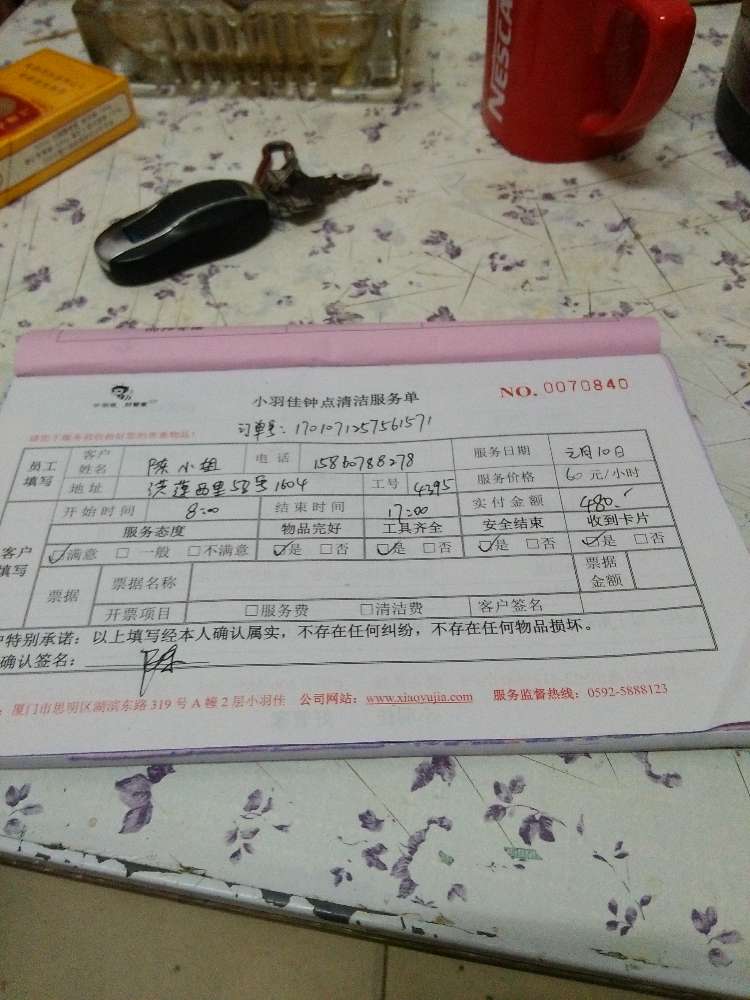 NESCA
小羽佳钟点清洁服务单
NO. 0070840
订单号：1701071257561571
员工填写 客户姓名 陈小姐 电话 15860788278 服务日期 元月10日
地址 洪莲西里58号1604 工号 4395 服务价格 60元/小时
开始时间 8:00 结束时间 17:00 实付金额 480.-
客户填写 服务态度 物品完好 工具齐全 安全结束 收到卡片
☑满意 □一般 □不满意 ☑是 □否 ☑是 □否 ☑是 □否 ☑是 □否
票据 票据名称 票据金额
开票项目 □服务费 □清洁费 客户签名
户特别承诺：以上填写经本人确认属实，不存在任何纠纷，不存在任何物品损坏。
确认签名： 陈
：厦门市思明区湖滨东路319号A幢2层小羽佳 公司网站：www.xiaoyujia.com 服务监督热线：0592-5888123